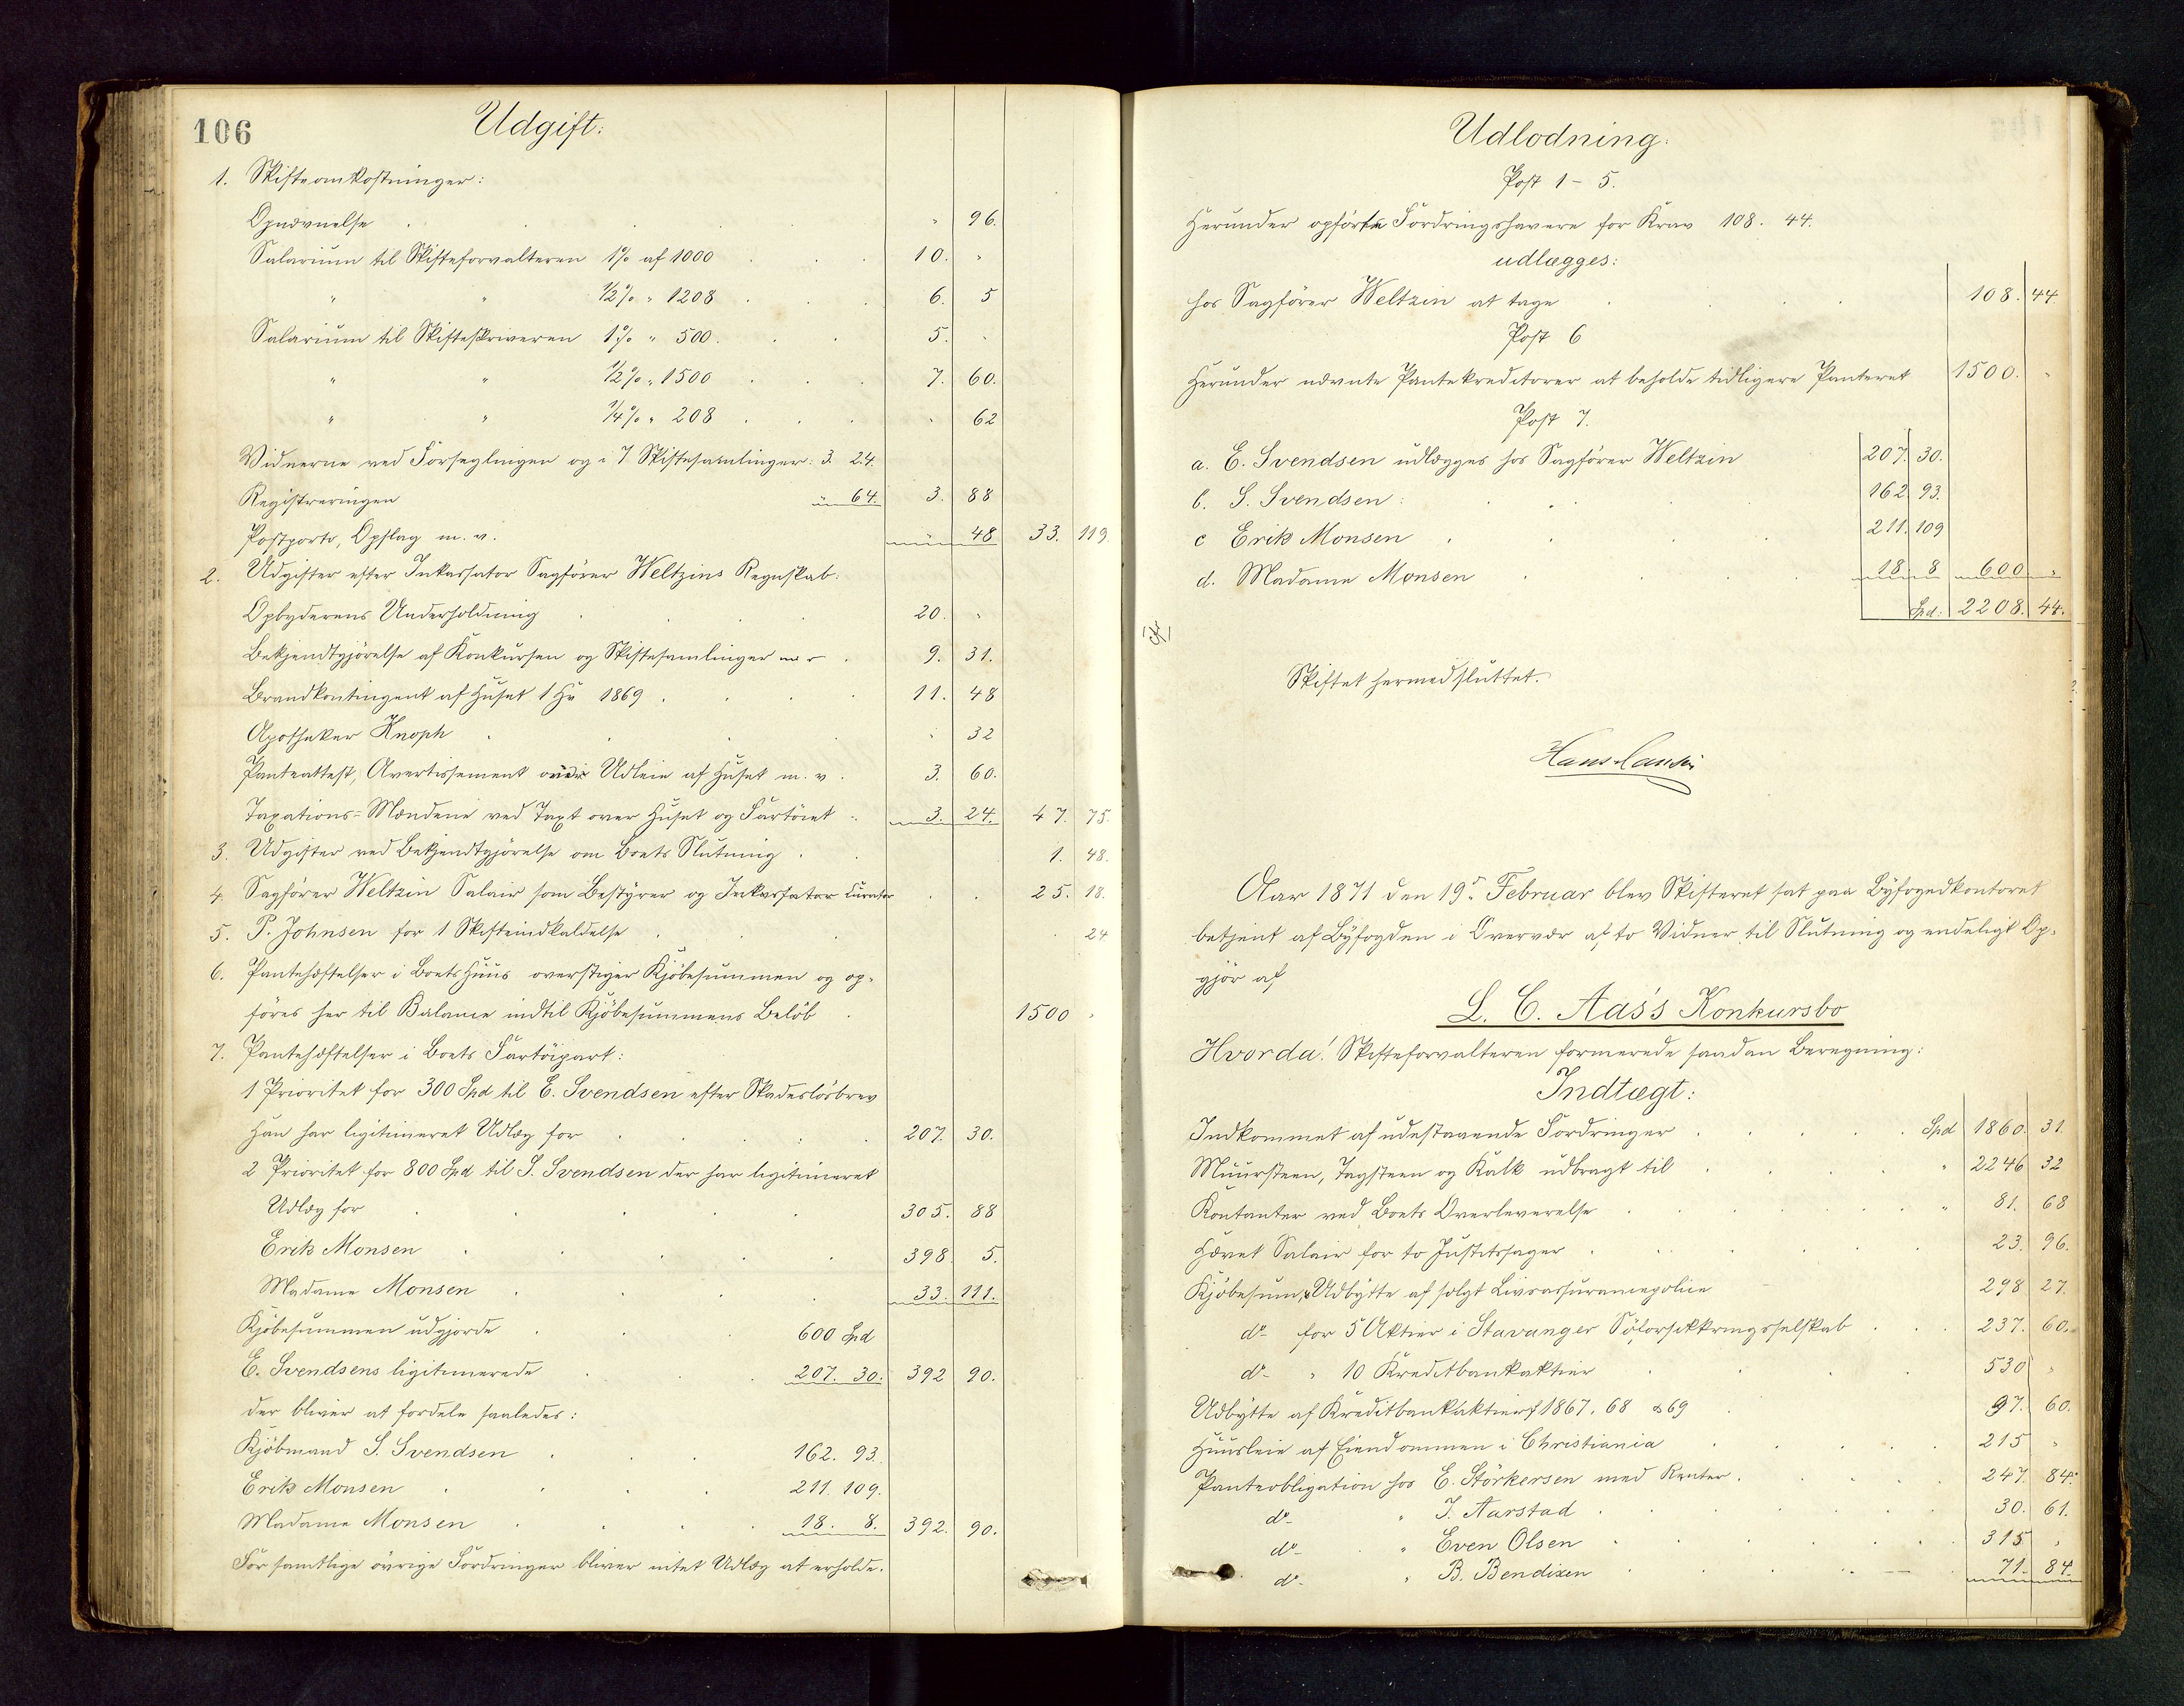 106
Udgift:
1. Skifteomkostninger:
Opnævnelse . . . . " 96.
Salarium til Skifteforvalteren 1% af 1000 . . . 10. "
" " 1/2% " 1208 . . . 6. 5
Salarium til Skifteskriveren 1% " 500 . . . 5. "
" " 1/2% " 1500 . . . 7. 60.
" " 1/4% " 208 . . . " 62
Vidnerne ved Forseglingen og i 7 Skiftesamlinger: 3. 24.
Registreringen " 64. 3. 88
Postporto, Opslag m. v. " 48 33. 119.
2. Udgifter efter Inkassator Sagfører Weltzins Regnskab:
Opbyderens Underholdning . . . 20. "
Bekjendtgjörelse af Konkursen og Skiftesamlinger m v . 9. 31.
Brandkontingent af Huset 1 Hv 1869 . . . 11. 48
Apotheker Knoph . . . " 32
Panteattest, Avertissement Udleie af Huset m. v. 3. 60.
Taxations-Mændene ved Taxt over Huset og Fartöiet . 3. 24. 47. 75.
3. Udgifter ved Bekjendtgjörelse om Boets Slutning . . 1. 48.
4. Sagförer Weltzin Salair som Bestyrer og Inkassator Curator . . 25. 18.
5. P. Johnsen for 1 Skifteindkaldelse . . . " 24
6. Pantehæftelser i Boets Huus overstiger Kjöbesummen og op-
föres her til Balance indtil Kjöbesummens Belöb . 1500 "
7. Pantehæftelser i Boets Fartöipart:
1 Prioritet for 300 Spd til E. Svendsen efter Skadeslösbrev
Han har ligitimeret Udlæg for . . . 207. 30.
2 Prioritet for 800 Spd til S. Svendsen der har ligitimeret
Udlæg for . . . 305. 88
Erik Monsen . . . 398 5.
Madame Monsen . . . 33. 111.
Kjöbesummen udgjorde . . . 600 Spd
E. Svendsens ligitimerede . . . 207. 30. 392 90.
der bliver at fordele saaledes:
Kjöbmand S. Svendsen . . . 162. 93.
Erik Monsen . . . 211. 109.
Madame Monsen . . . 18. 8. 392. 90.
For samtlige övrige Fordringer bliver intet Udlæg at erholde.
Udlodning:
Post 1 - 5.
Herunder opförte Fordringshavere for Krav 108. 44.
udlægges:
hos Sagförer Weltzin at tage . . . 108. 44
Post 6
Herunder nævnte Pantekreditorer at beholde tidligere Panteret 1500. "
Post 7.
a. E. Svendsen udlægges hos Sagförer Weltzin 207. 30.
b. S. Svendsen: . . . 162 93.
c Erik Monsen . . . 211. 109
d. Madame Monsen . . . 18 8 600 "
Spd. 2208. 44.
Skiftet hermed sluttet.
Aar 1871 den 19de Februar blev Skifteret sat paa Byfogedkontoret
betjent af Byfogden i Overvær af to Vidner til Slutning og endeligt Op-
gjör af
L. C. Aas's Konkursbo
Hvorda! Skifteforvalteren formerede saadan Beregning:
Indtægt:
Indkommet af udestaaende Fordringer . . . Spd 1860. 31
Muursteen, Tagsteen og Kalk udbragt til . . . " 2246 32
Kontanter ved Boets Overleverelse . . . " 81. 68
Hævet Salair for to Justitssager . . . 23. 96.
Kjöbesum, Udbytte af solgt Livsassurancepolice 298. 27.
do for 5 Aktier i Stavanger Söforsikkringsselskab . . 237. 60.
do " 10 Kreditbankaktier . . . 530 "
Udbytte af Kreditbankaktier f 1867, 68 & 69 . 97. 60.
Huusleie af Eiendommen i Christiania . . . 215 "
Panteobligation hos E. Störkersen med Renter . . . 247. 84.
do " J. Aarstad . . . 30. 61.
do " Even Olsen . . . 315 "
do " B. Bendixen . . . 71. 84.